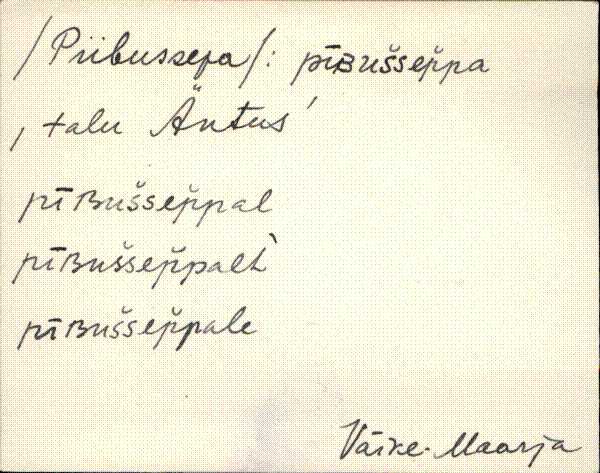 /Piibussepa/: pīʙuš̆sep̆pa
‚talu Äntus’
pīʙuš̆sep̆pal
pīʙuš̆sep̆palt̀
pīʙuš̆sep̆pale
Väike-Maarja